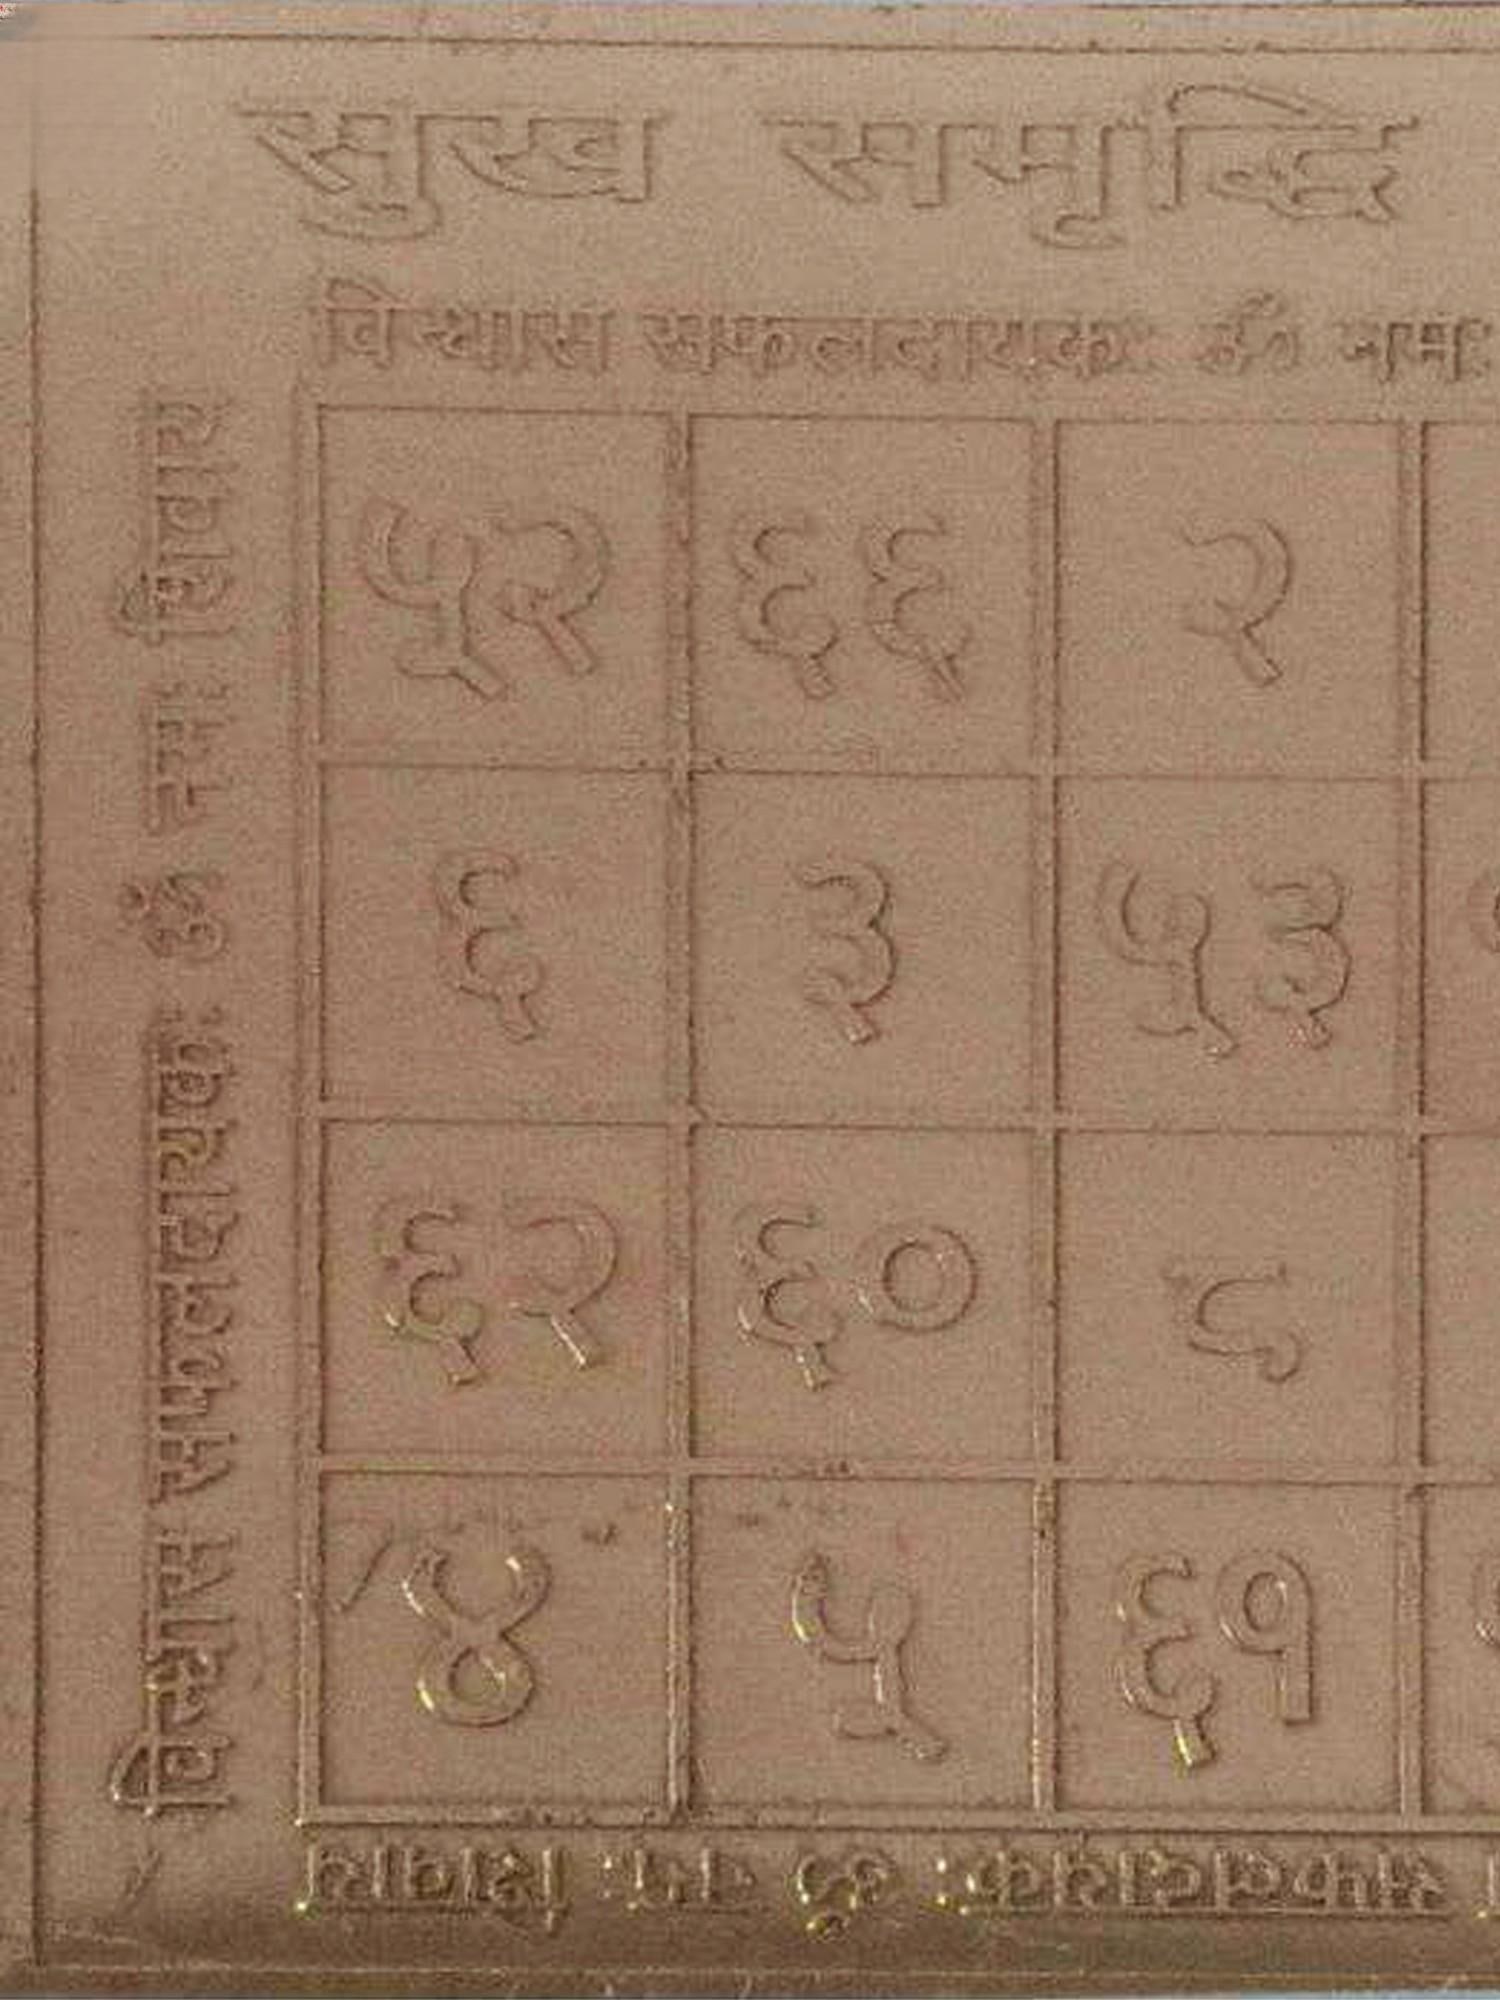 सुख समृद्धि
विश्वास सफलदायकः ॐ नमः
विश्वास सफलदायकः ॐ नमः शिवाय
५२ ६६ २
६ ३ ५३
६२ ६० ८
४ ५ ६१
सफलदायकः ॐ नमः शिवाय